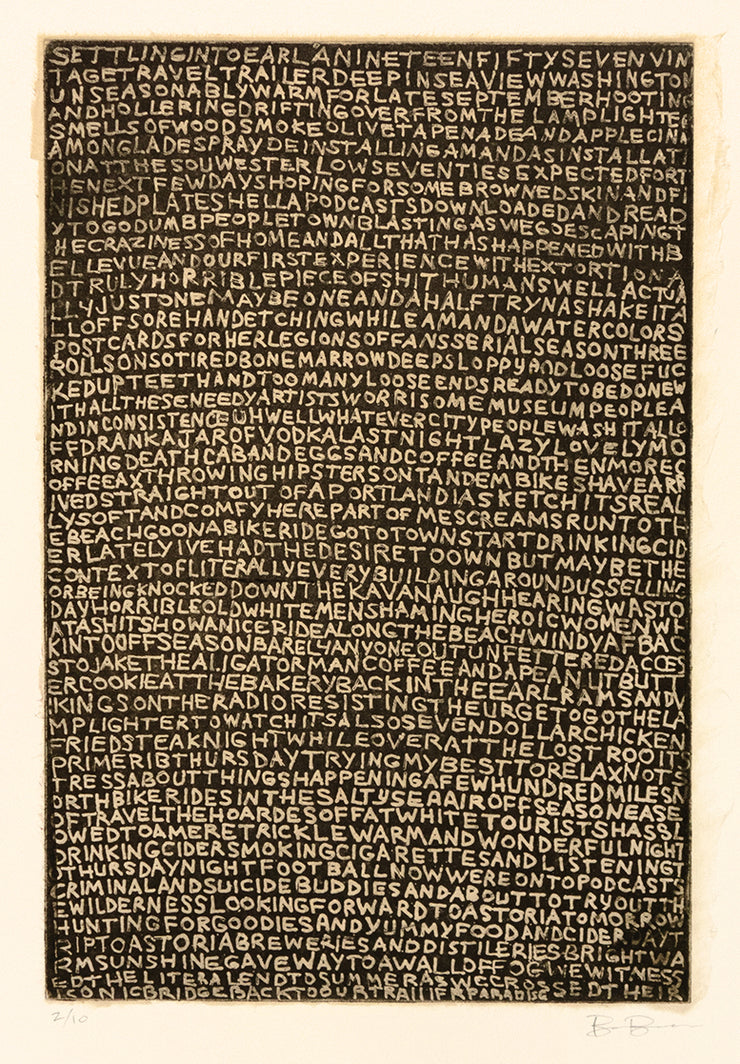 SETTLINGINTOEARLANINETEENFIFTYSEVENVIN
TAGETRAVELTRAILERDEEPINSEAVIEWWASHINGTON
UNSEASONABLYWARMFORLATESEPTEMBERHOOTING
ANDHOLLERINGDRIFTINGOVERFROMTHELAMPLIGHTER
SMELLSOFWOODSMOKEOLIVETAPENADEANDAPPLECINA
AMONGLADESPRAYDEINSTALLINGAMANDASINSTALLATI
ONATTHESOUWESTERLOWSEVENTIESEXPECTEDFORT
HENEXTFEWDAYSHOPINGFORSOMEBROWNEDSKINANDFI
NISHEDPLATESHELLAPODCASTSDOWNLOADEDANDREAD
YTOGODUMBPEOPLETOWNBLASTINGASWEGOESCAPINGT
HECRAZINESSOFHOMEANDALLTHATHASHAPPENEDWITHB
ELLEVUEANDOURFIRSTEXPERIENCEWITHEXTORTIONA
DTRULYHORRIBLEPIECEOFSHITHUMANSWELLACTUA
LLYJUSTONEMAYBEONEANDAHALFTRYNASHAKEITA
LLOFFSOREHANDETCHINGWHILEAMANDAWATERCOLORS
POSTCARDSFORHERLEGIONSOFFANSSERIALSEASONTHREE
ROLLSONSOTIREDBONEMARROWDEEPSLOPPYANDLOOSEFUC
KEDUPTEETHANDTOOMANYLOOSEENDSREADYTOBEDONEW
ITHALLTHESENEEDYARTISTSWORRISOMEMUSEUMPEOPLEA
NDINCONSISTENCEUHWELLWHATEVERCITYPEOPLEWASHITALLO
FFDRANKAJAROFVODKALASTNIGHTLAZYLOVELYMO
RNINGDEATHCABANDEGGSANDCOFFEEANDTHENMOREC
OFFEEAXTHROWINGHIPSTERSONTANDEMBIKESHAVEARR
IVEDSTRAIGHTOUTOFAPORTLANDIASKETCHITSREAL
LYSOFTANDCOMFYHEREPARTOFMESCREAMSRUNTOTH
EBEACHGOONABIKERIDEGOTOTOWNSTARTDRINKINGCID
ERLATELYIVEHADTHEDESIRETOOWNBUTMAYBETHE
CONTEXTOFLITERALLYEVERYBUILDINGAROUNDUSSELLING
ORBEINGKNOCKEDDOWNTHEKAVANAUGHHEARINGWASTO
DAYHORRIBLEOLDWHITEMENSHAMINGHEROICWOMENWH
ATASHITSHOWANICERIDEALONGTHEBEACHWINDYAFBAC
KINTOOFFSEASONBARELYANYONEOUTUNFETTEREDACCES
STOJAKETHEALIGATORMANCOFFEEANDAPEANUTBUTT
ERCOOKIEATTHEBAKERYBACKINTHEEARLRAMSANDV
IKINGSONTHERADIORESISTINGTHEURGETOGOTHELA
MPLIGHTERTOWATCHITSALSOSEVENDOLLARCHICKEN
FRIEDSTEAKNIGHTWHILEOVERATTHELOSTROOITS
PRIMERIBTHURSDAYTRYINGMYBESTTORELAXNOTS
TRESSABOUTTHINGSHAPPENINGAFEWHUNDREDMILESN
ORTHBIKERIDESINTHESALTYSEAAIROFFSEASONEASE
OFTRAVELTHEHOARDESOFFATWHITETOURISTSHASSL
OWEDTOAMERETRICKLEWARMANDWONDERFULNIGHT
DRINKINGCIDERSMOKINGCIGARETTESANDLISTENINGT
OTHURSDAYNIGHTFOOTBALLNOWWEREONTOPODCASTS
CRIMINALANDSUICIDEBUDDIESANDABOUTTOTRYOUTTH
EWILDERNESSLOOKINGFORWARDTOASTORIATOMORROW
HUNTINGFORGOODIESANDYUMMYFOODANDCIDERDAYT
RIPTOASTORIABREWERIESANDDISTILERIESBRIGHTWA
RMSUNSHINEGAVEWAYTOAWALLOFFOGWEWITNESS
EDTHELITERALENDTOSUMMERASWECROSSEDTHEIR
ICONICBRIDGEBACKTOOURTRAILERPARADISE
2/10